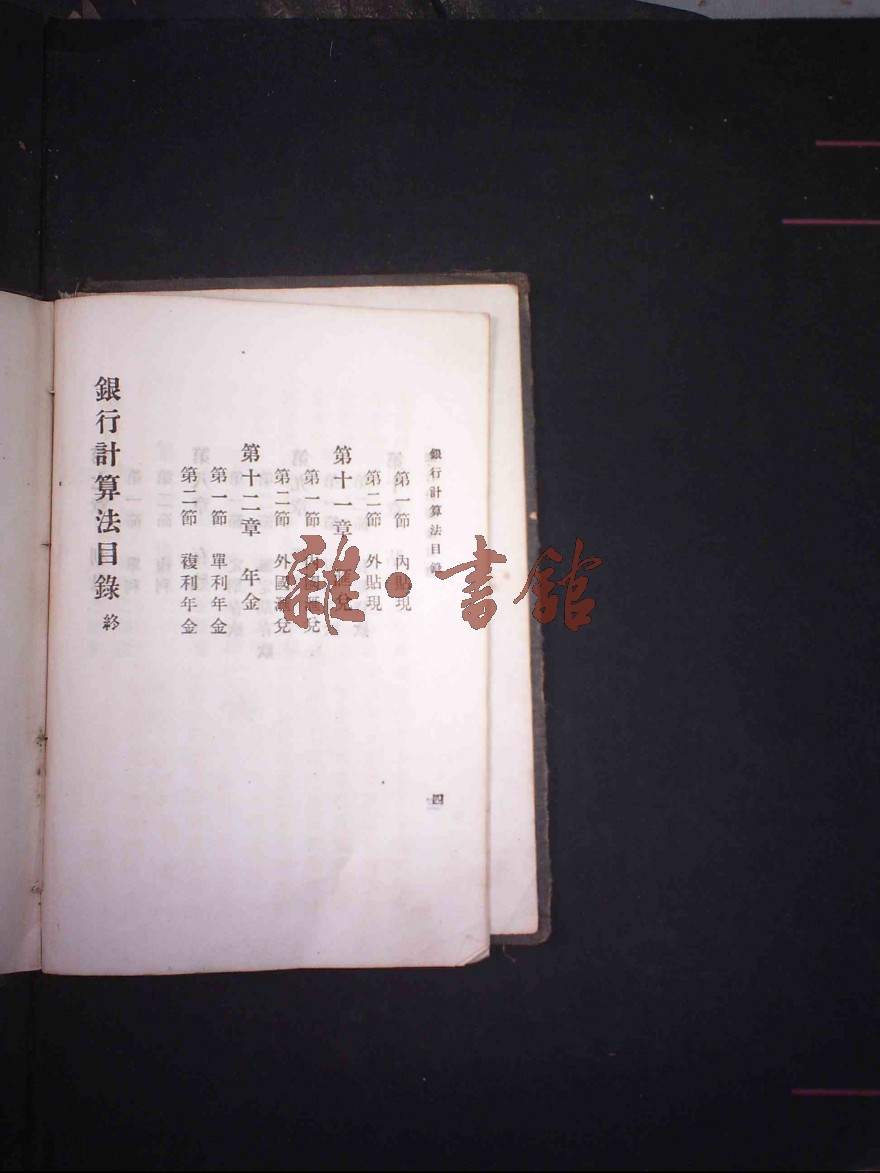 銀行計算法目錄
第一節 內貼現
第二節 外貼現
第十一章 匯兌
第一節 內國匯兌
第二節 外國滙兌
第十二章 年金
第一節 單利年金
第二節 複利年金
銀行計算法目錄 終
四
雜·書館